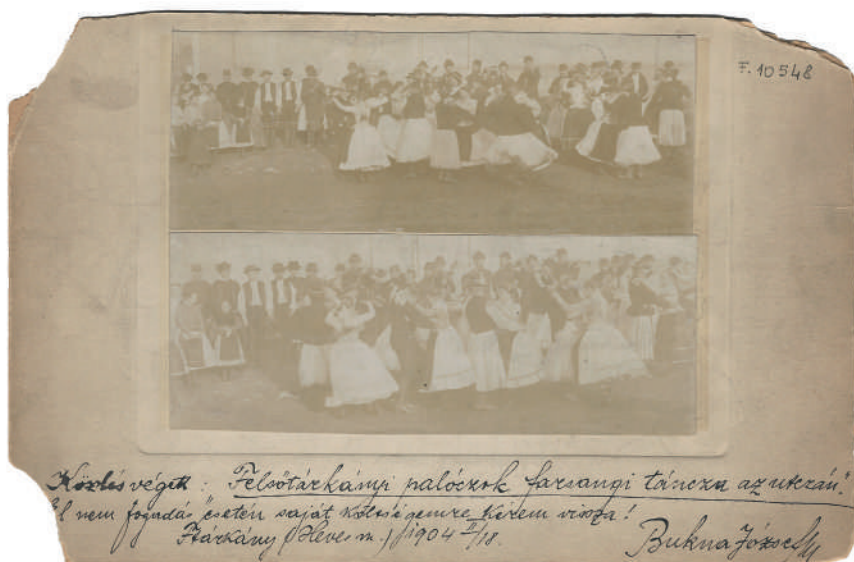 F. 10548
Közlés végett : "Felsőtárkányi palóczok farsangi táncza az utczán."
El nem fogadás esetén saját költségemre kérem vissza!
Ftárkány (Heves m.) 1904 II/18.
Bukna József